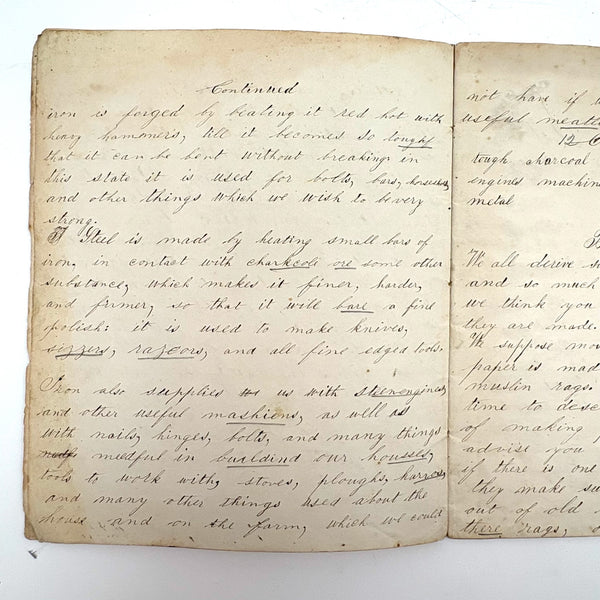 Continued
iron is forged by beating it red hot with
heavy hammers, till it becomes so tought
that it can be bent without breaking in
this state it is used for bolts, bars, horseshoes,
and other things which we wish to be very
strong.
Steel is made by heating small bars of
iron, in contact with charkcole ore some other
substance, which makes it finer, harder,
and firmer, so that it will bare a fine
polish: it is used to make knives,
sizzers, razors, and all fine edged tools.
Iron also supplies us with steenengines,
and other useful mashiens, as well as
with nails, hinges, bolts, and many things
needful in buildind our housses,
tools to work with, stoves, ploughs, harrows,
and many other things used about the
house and on the farm, which we could
not have if
useful
12
tough charcoal
engines machin
metal
We all derive
and so much
we think you
they are made.
We suppose
paper is mad
muslin rags.
time to desc
of making
advise you
if there is one
they make su
out of old
there rags,